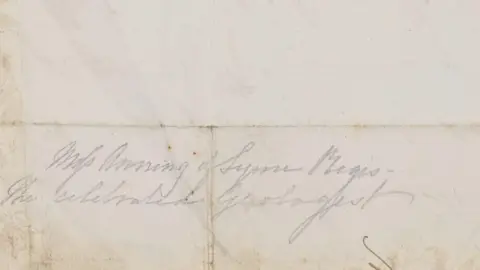 Miss Anning of Lyme Regis -
The celebrated Geologist